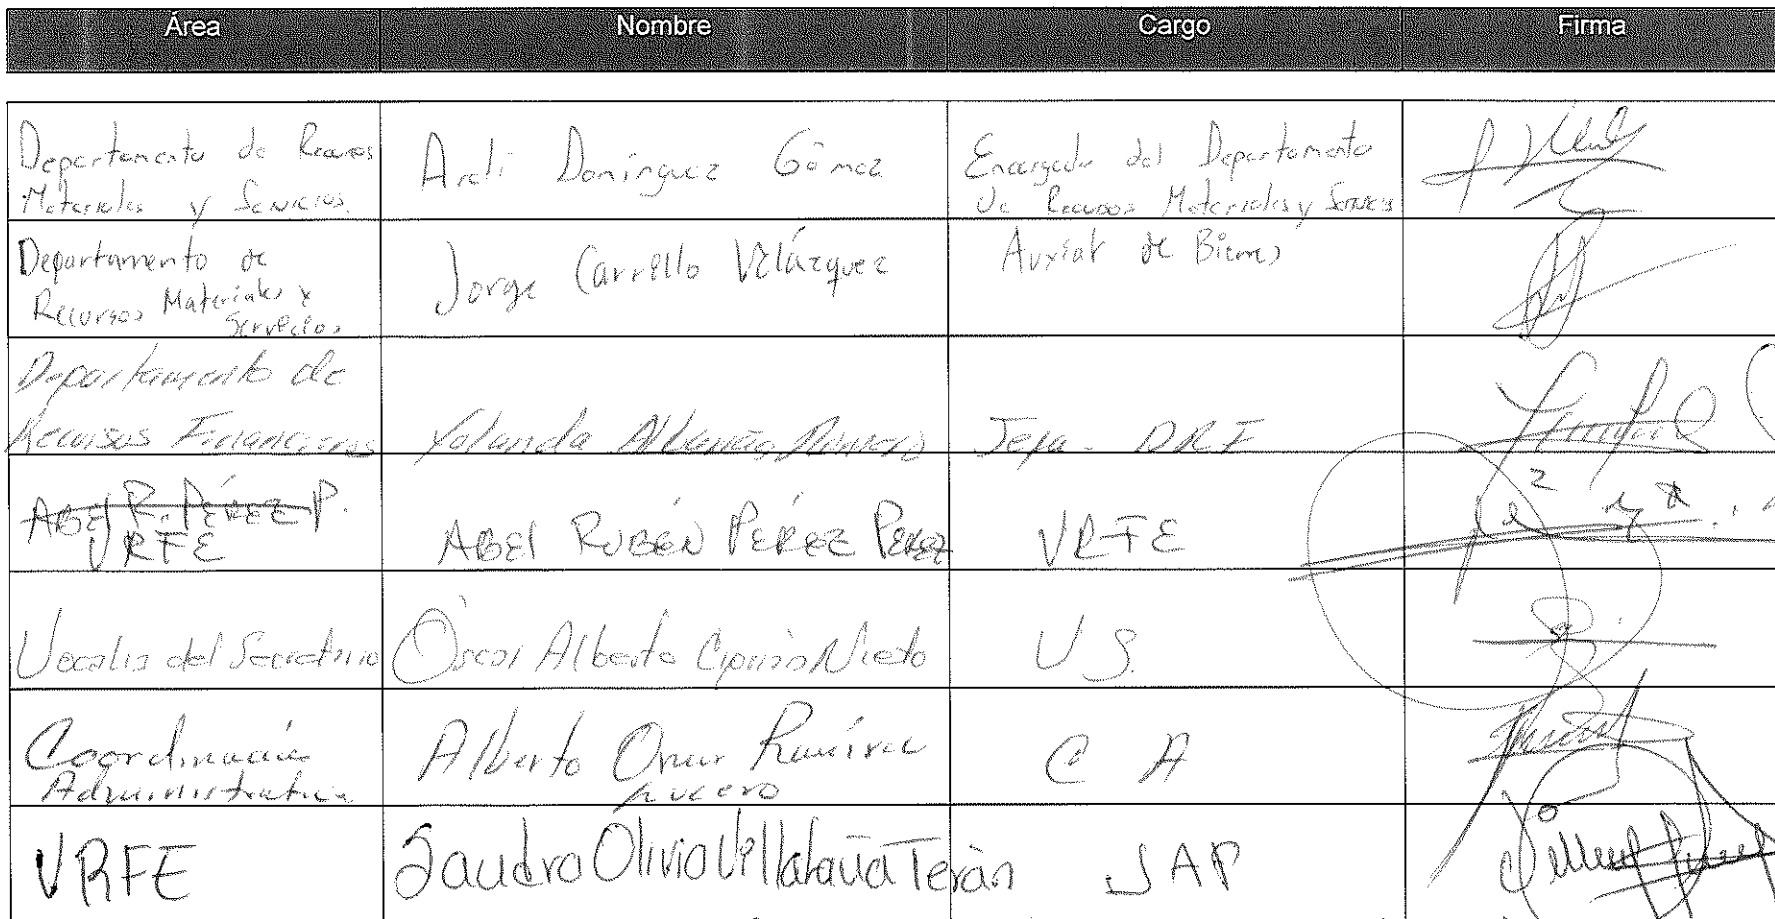 Área Nombre Cargo Firma
Departamento de Recursos
Materiales y Servicios.
Domínguez Gómez
Encargado del Departamento
De Recursos Materiales y Servicios
Departamento de
Recursos Materiales y
Servicios
Jorge Carrillo Velázquez
Auxiar de Bienes
Departamento de
Recursos Financieros
Yolanda
Jefa - DRF
Abel R. Pérez P.
VRFE
ABEl RUBÉN PÉREZ PEREZ
VRFE
Vocalía del Secretario
Óscar Alberto Nieto
V S.
Coordinación
Administrativa
Alberto Omar Ramírez
Lucero
C A
VRFE
Villalaña Terán
JAP